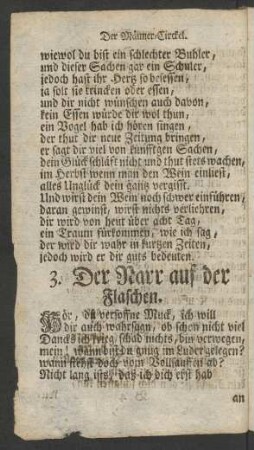 Der Männer-Circkel.
wiewol du bist ein schlechter Buhler,
und dieser Sachen gar ein Schuler,
jedoch hast ihr Hertz so besessen,
ja solt sie trincken oder essen,
und dir nicht wünschen auch davon,
kein Essen würde dir wol thun,
ein Vogel hab ich hören singen,
der thut dir neue Zeitung bringen,
er sagt dir viel von künfftgen Sachen,
dein Glück schläft nicht und thut stets wachen,
im Herbst wenn man den Wein einliest,
alles Unglück dein gantz vergisst.
Und wirst dein Wein noch schwer einführen,
daran gewinst, wirst nichts verliehren,
dir wird von heut über acht Tag,
ein Traum fürkommen, wie ich sag,
der wird dir wahr in kurtzen Zeiten,
jedoch wird er dir guts bedeuten.
3. Der Narr auf der
Flaschen.
Hör, du versoffne Muck, ich will
dir auch wahrsagn, ob schon nicht viel
Dancks ich krieg, schad nichts, bin verwegen,
mein! wann bist gnug im Luder gelegen?
wann stehst doch vom Vollsauffen ab?
Nicht lang ists, daß ich dich erst hab
an